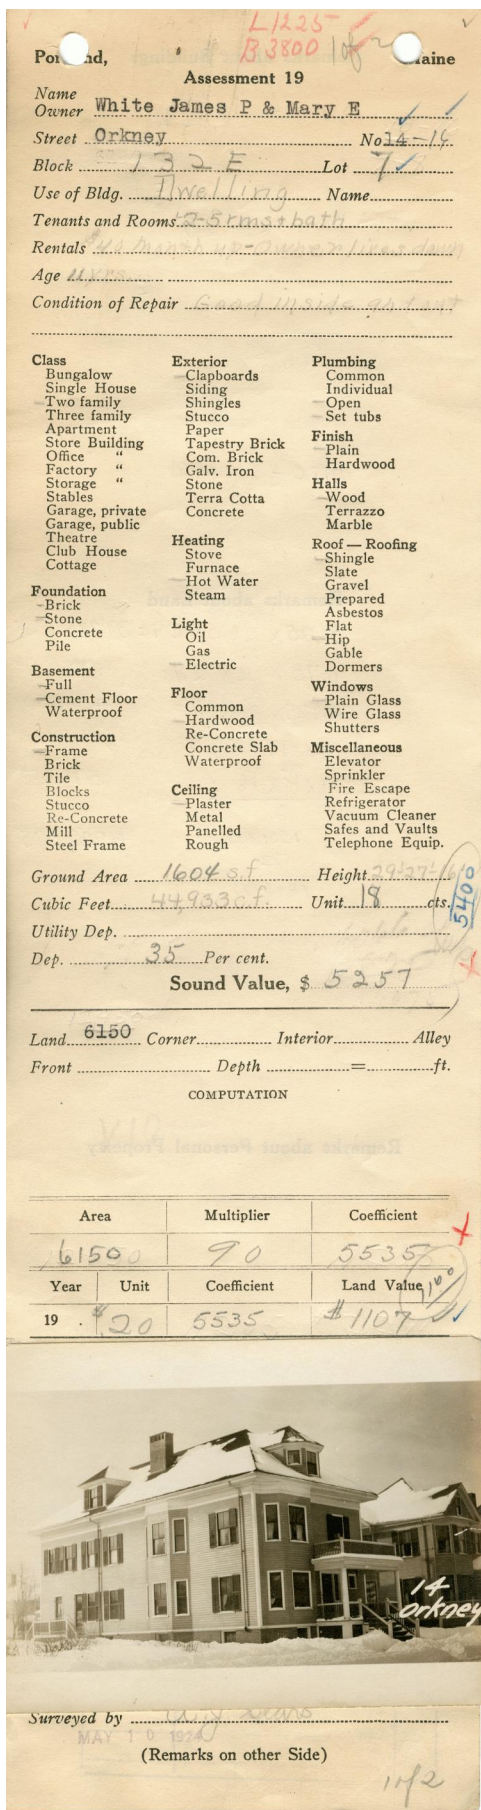 L1225
B3800 1 of 2
Portland, Maine
Assessment 19
Name
Owner White James P & Mary E
Street Orkney No 14-16
Block 132E Lot 7
Use of Bldg. Dwelling Name
Tenants and Rooms 2-5 rms + bath
Rentals $40 month up-Owner lives down
Age 11 yrs.
Condition of Repair Good inside and out
Class
Bungalow
Single House
Two family
Three family
Apartment
Store Building
Office "
Factory "
Storage "
Stables
Garage, private
Garage, public
Theatre
Club House
Cottage
Foundation
Brick
Stone
Concrete
Pile
Basement
Full
Cement Floor
Waterproof
Construction
Frame
Brick
Tile
Blocks
Stucco
Re-Concrete
Mill
Steel Frame
Exterior
Clapboards
Siding
Shingles
Stucco
Paper
Tapestry Brick
Com. Brick
Galv. Iron
Stone
Terra Cotta
Concrete
Heating
Stove
Furnace
Hot Water
Steam
Light
Oil
Gas
Electric
Floor
Common
Hardwood
Re-Concrete
Concrete Slab
Waterproof
Ceiling
Plaster
Metal
Panelled
Rough
Plumbing
Common
Individual
Open
Set tubs
Finish
Plain
Hardwood
Halls
Wood
Terrazzo
Marble
Roof — Roofing
Shingle
Slate
Gravel
Prepared
Asbestos
Flat
Hip
Gable
Dormers
Windows
Plain Glass
Wire Glass
Shutters
Miscellaneous
Elevator
Sprinkler
Fire Escape
Refrigerator
Vacuum Cleaner
Safes and Vaults
Telephone Equip.
Ground Area 1604 s.f. Height 29-27-16
Cubic Feet 44,933 c.f. Unit 18 cts.
5400
Utility Dep.
Dep. 35 Per cent.
Sound Value, $ 5257
Land 6150 Corner Interior Alley
Front Depth = ft.
COMPUTATION
Remarks about Personal Property
Area Multiplier Coefficient
6150 90 5535
Year Unit Coefficient Land Value
1100
19 . $20 5535 $1107
14
orkney
Surveyed by
MAY 10 1924
(Remarks on other Side)
1 of 2